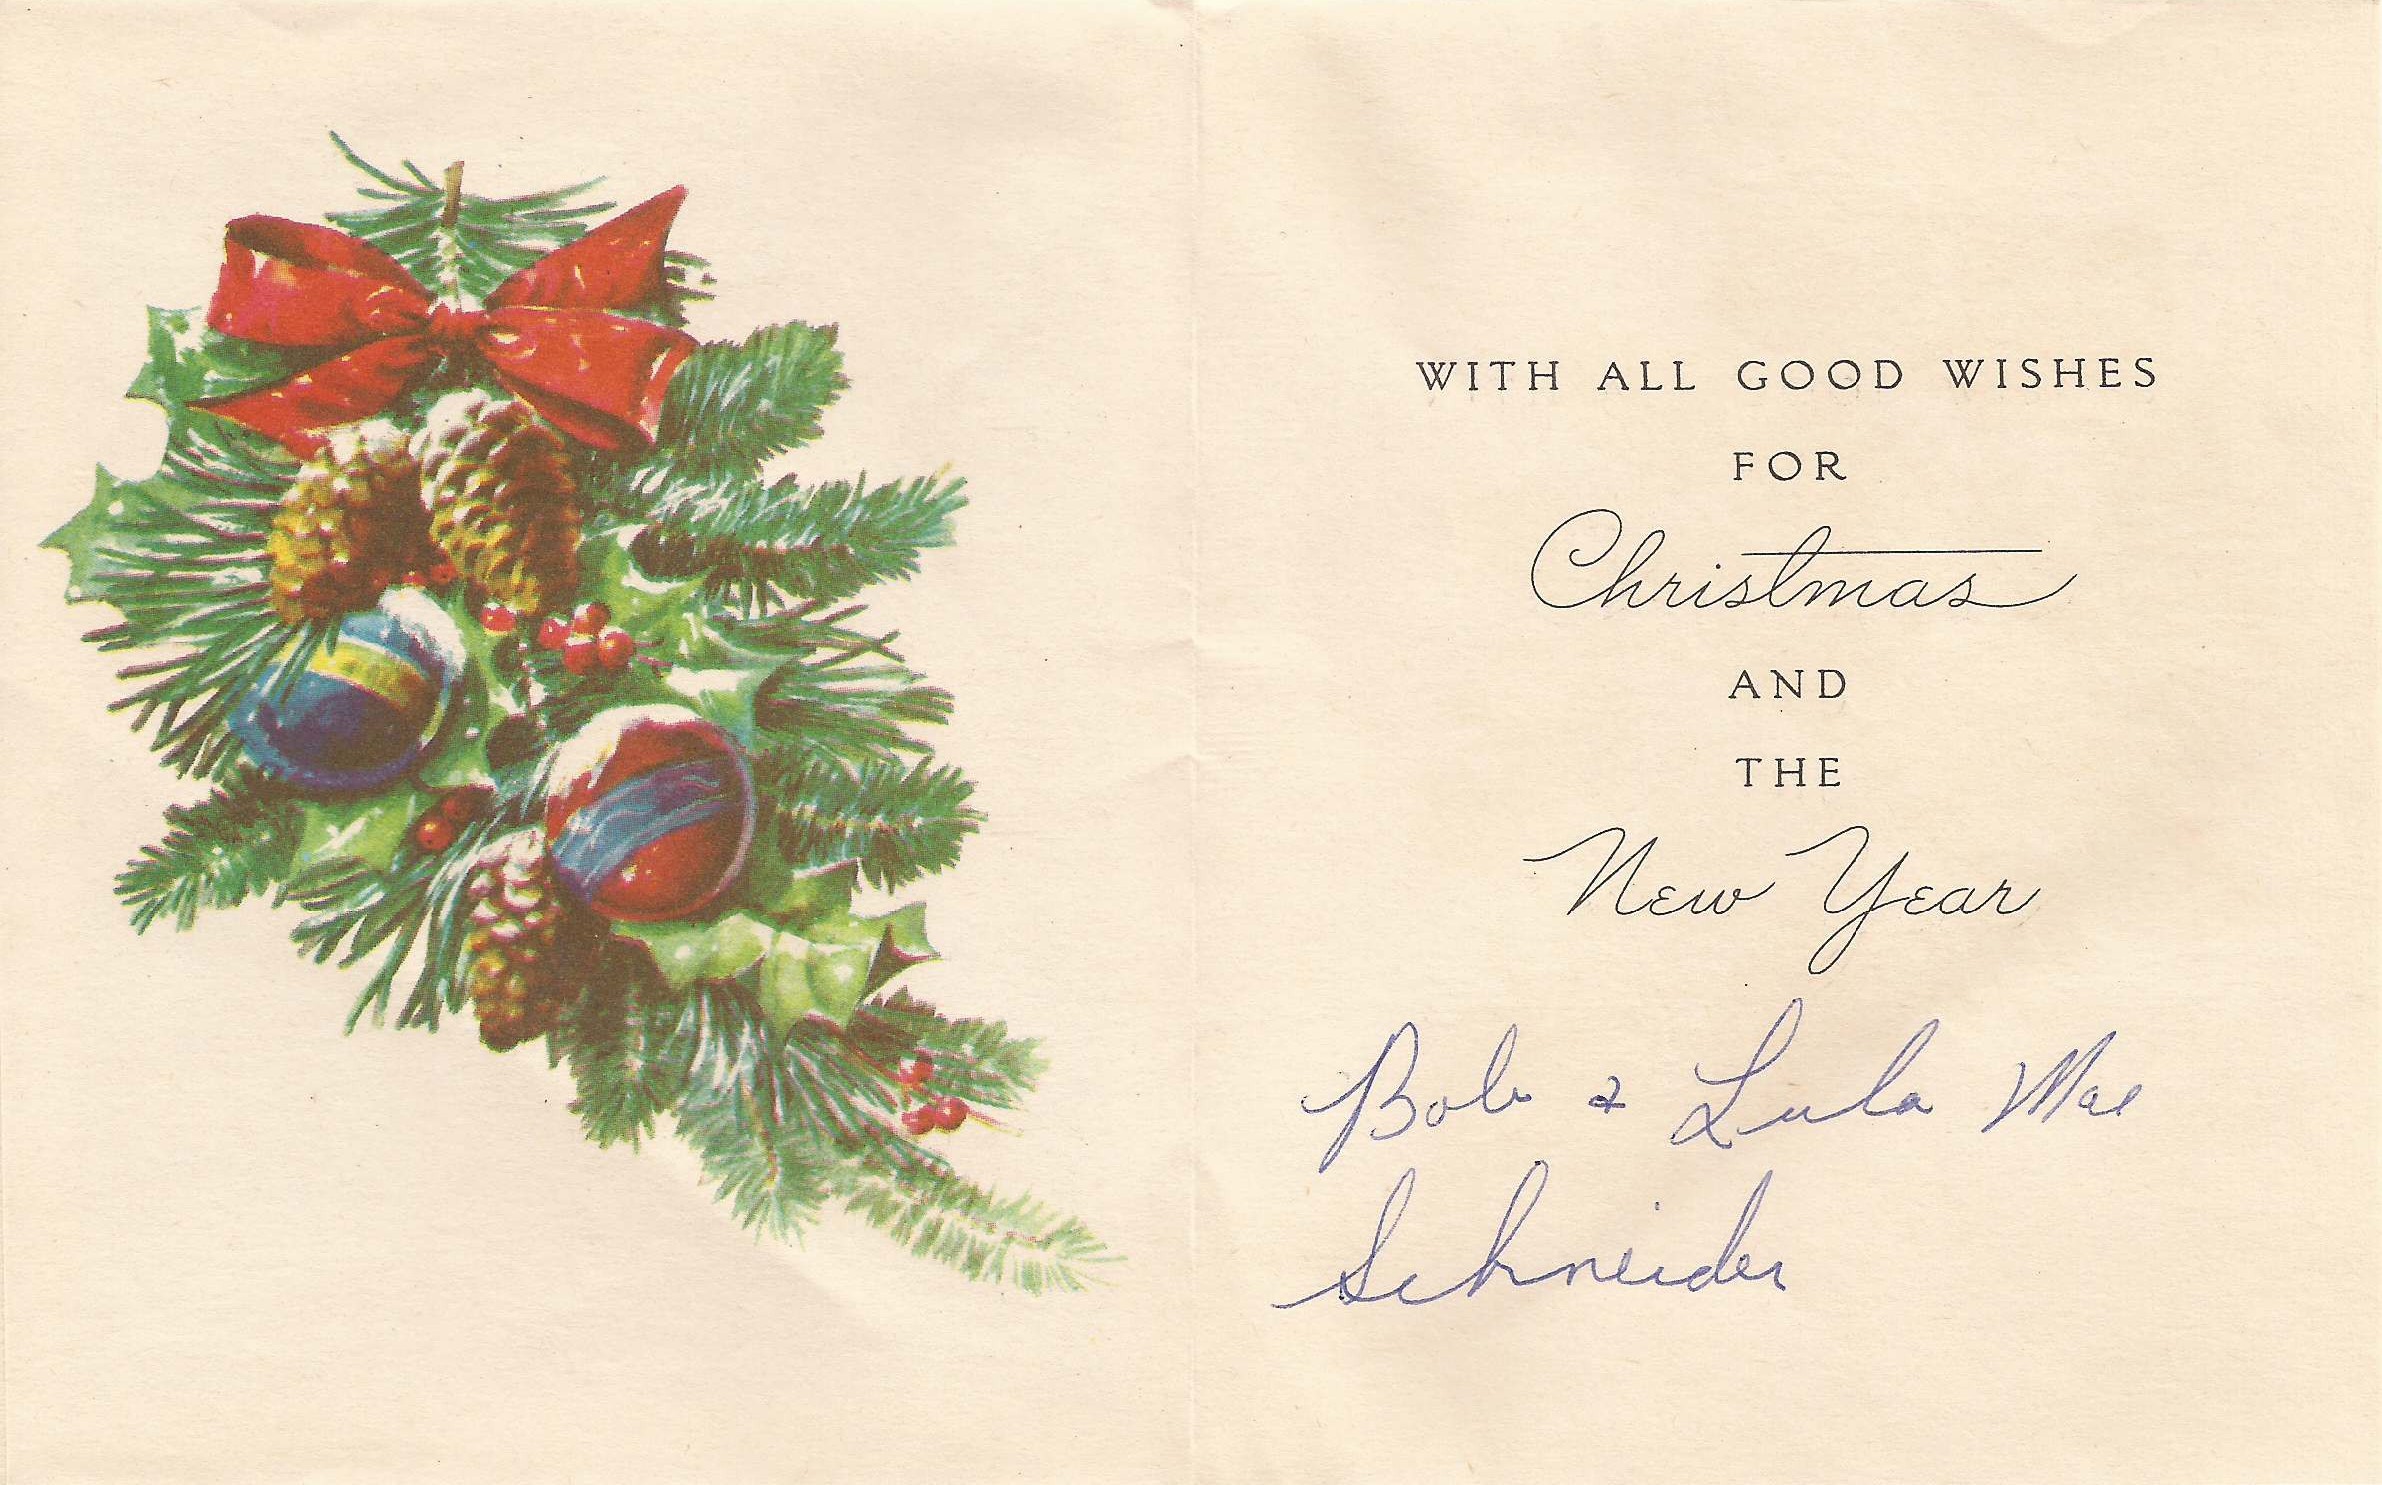 WITH ALL GOOD WISHES
FOR
Christmas
AND
THE
New Year
Bob & Lula Mae
Schneider